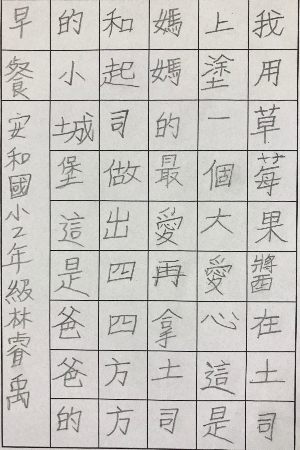 我用草莓果醬在土司
上塗一個大愛心這是
媽媽的最愛再拿土司
和起司做出四四方方
的小城堡這是爸爸的
早餐
安和國小2年級林睿禹